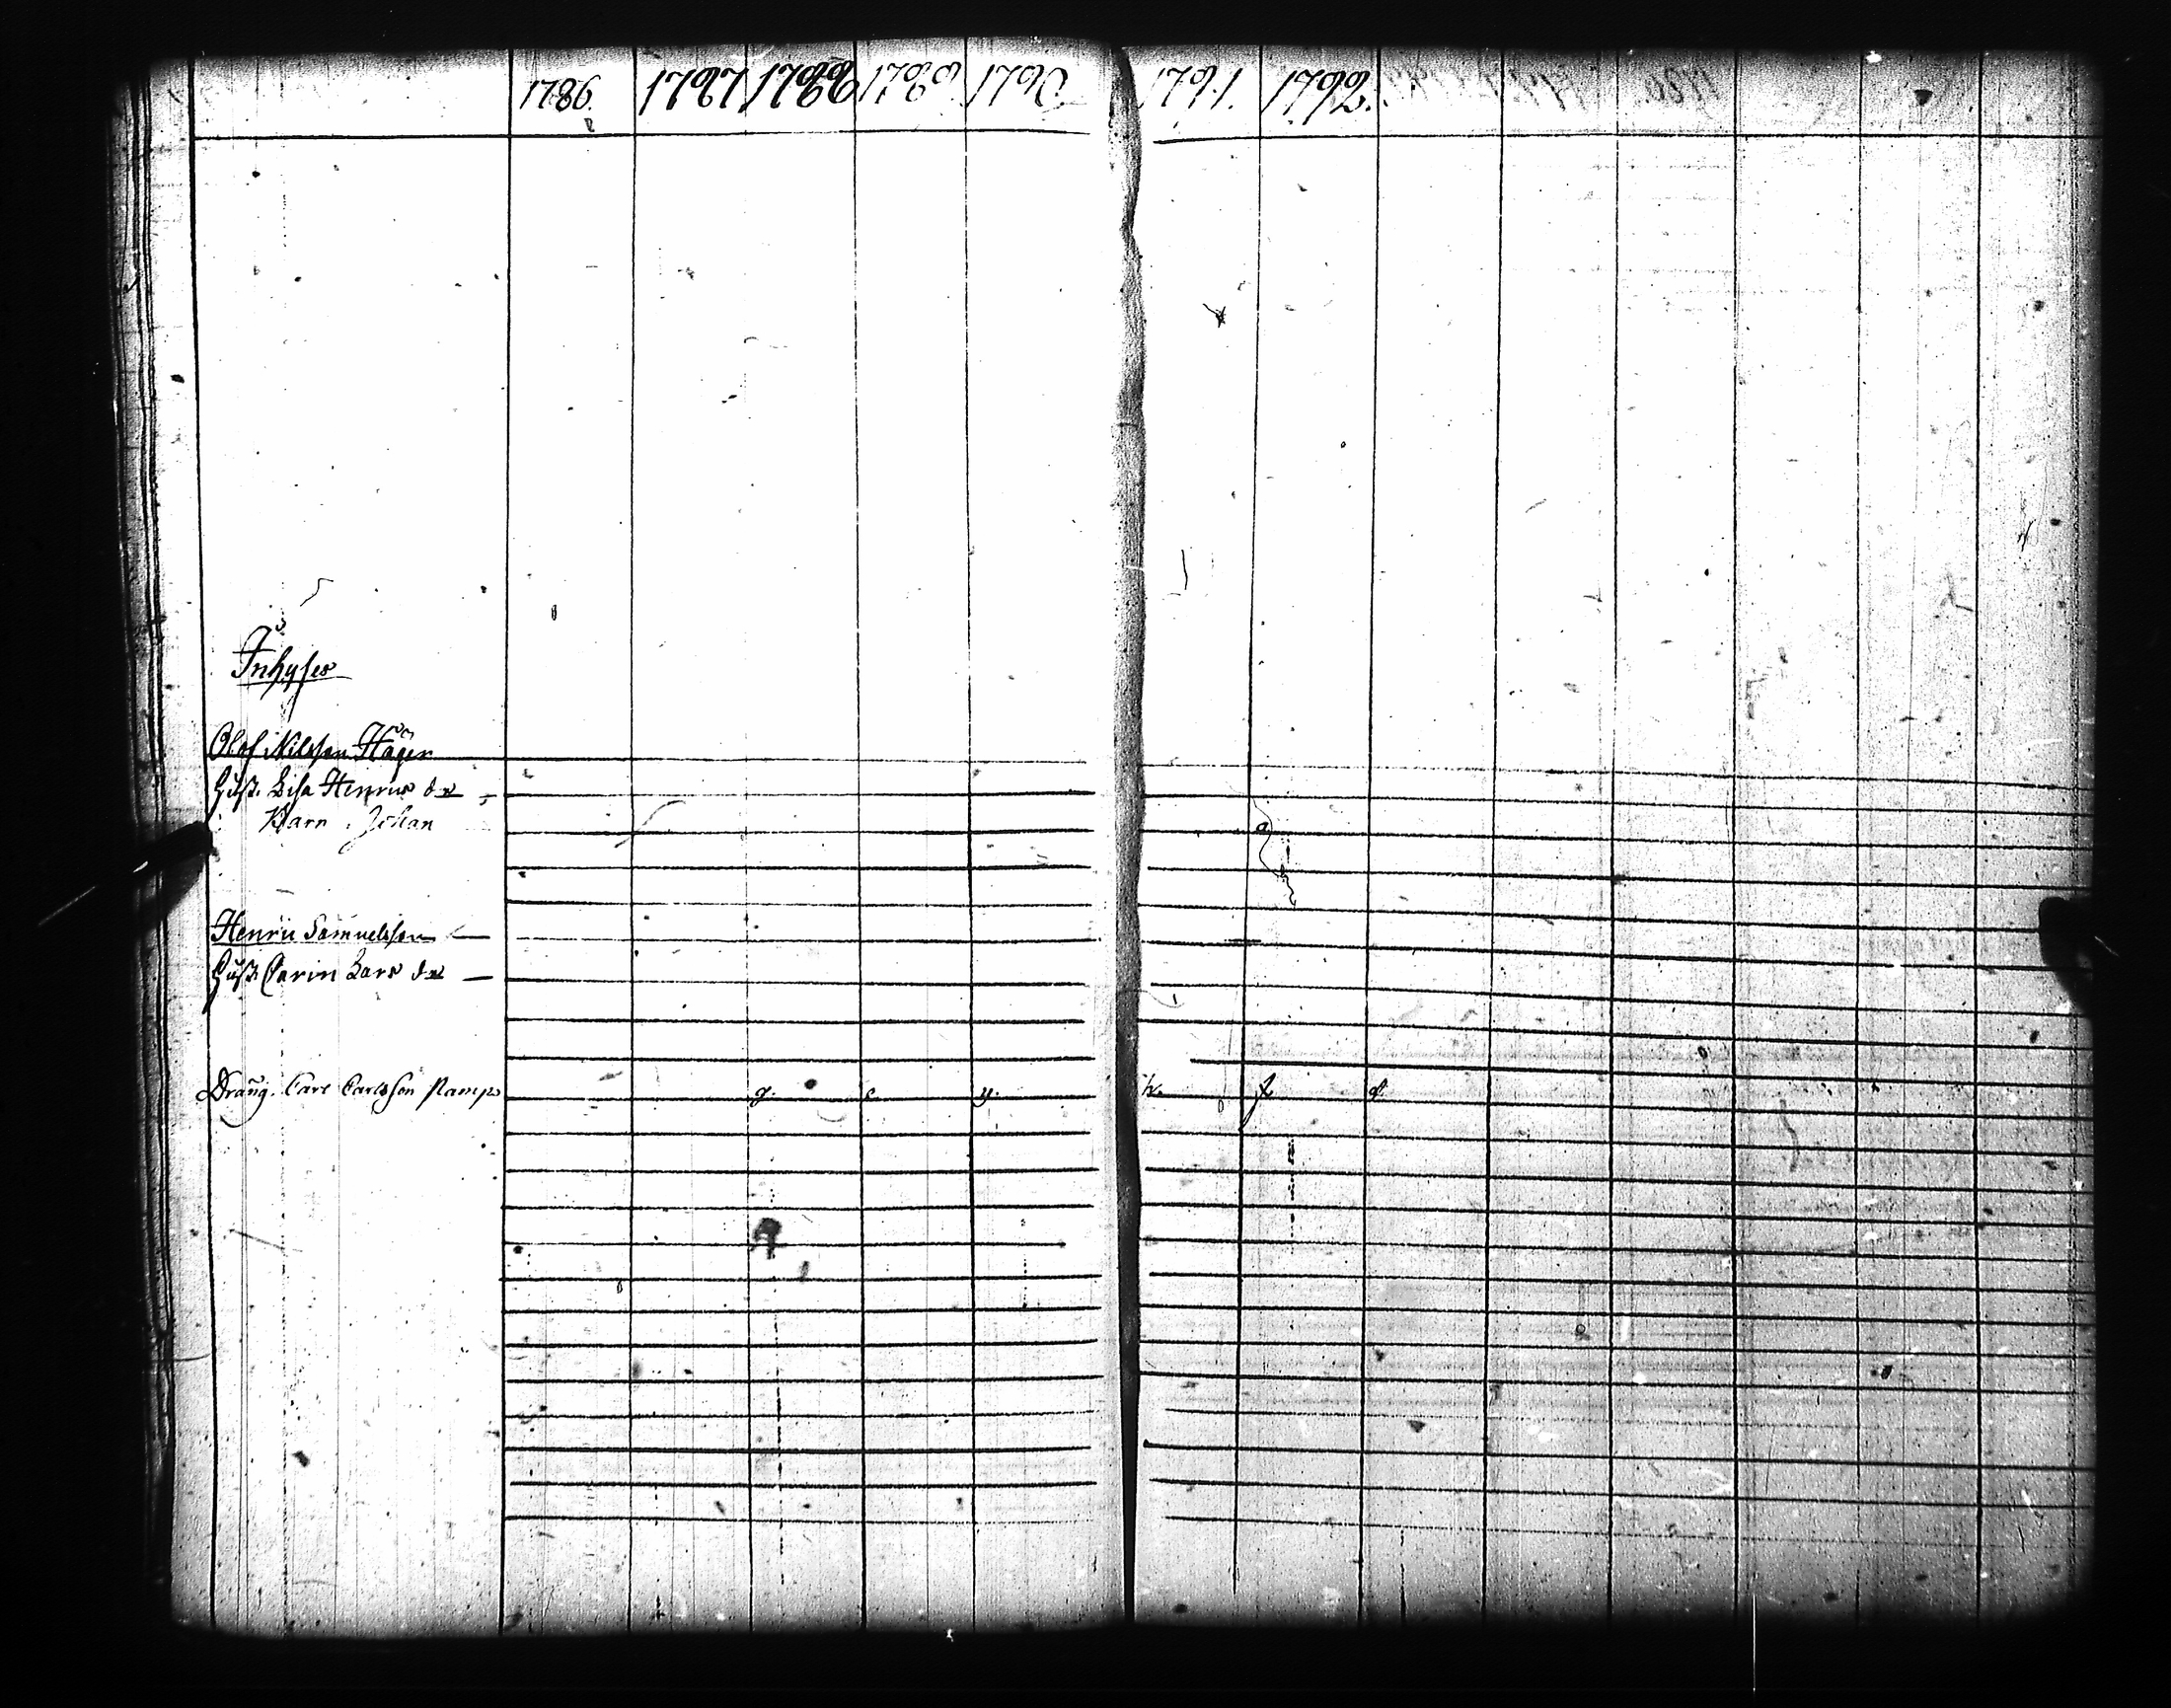 1786. 1787 1788 1789. 1790. 1791. 1792.
Inhyses
Olof Nilsson Häger
Hust. Lisa Henrics dr
Barn Johan
Henric Samuelsson
Hust. Carin Lars dr
Dräng. Carl Carlsson Kamp g. c. y. h. f. d.